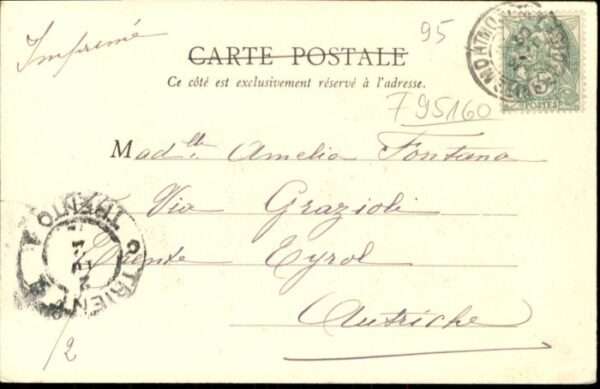 Imprimé
95
CARTE POSTALE
Ce côté est exclusivement réservé à l'adresse.
795160
Mad lle. Amelia Fontana
Via Grazioli
Trente Tyrol
Autriche
TRIENT
TRENTO
POSTES
1/2